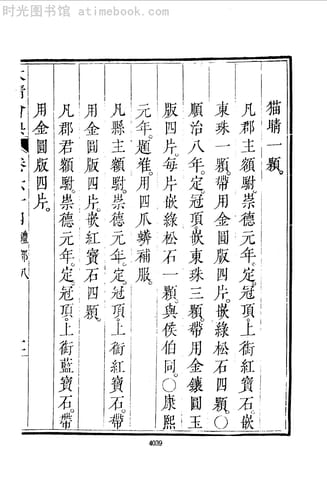 时光图书馆 - atimebook.com
猫睛一顆。
凡郡主額駙崇德元年。定冠頂上銜紅寶石。嵌
東珠一顆。帶用金圓版四片。嵌綠松石四顆。○
順治八年。定冠頂嵌東珠三顆。帶用金鑲圓玉
版四片。每片嵌綠松石一顆。與侯伯同。○康熙
元年。題准。用四爪蟒補服。
凡縣主額駙崇德元年。定冠頂上銜紅寶石。帶
用金圓版四片。嵌紅寶石四顆。
凡郡君額駙崇德元年。定冠頂上銜藍寶石。帶
用金圓版四片。
大清會典 卷六十四 禮部八
4039